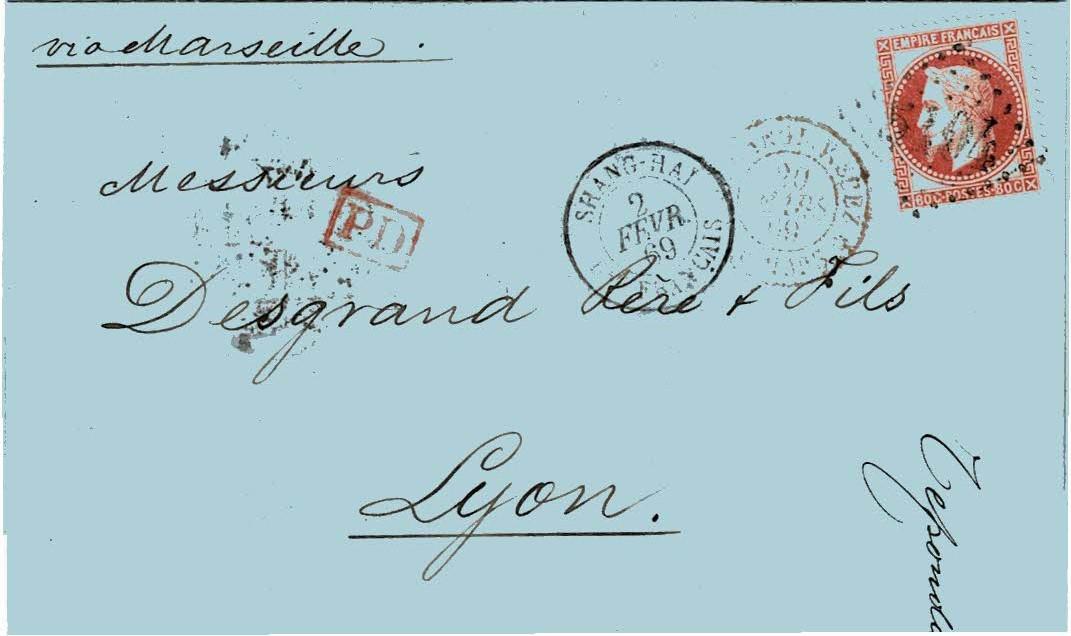 via Marseille.
EMPIRE FRANÇAIS
80C·POSTES·80C
SHANG-HAI
2
FÉVR.
69
FRANÇAIS
20
MARS
69
PD
Messieurs
Desgrand Père & Fils
Lyon.